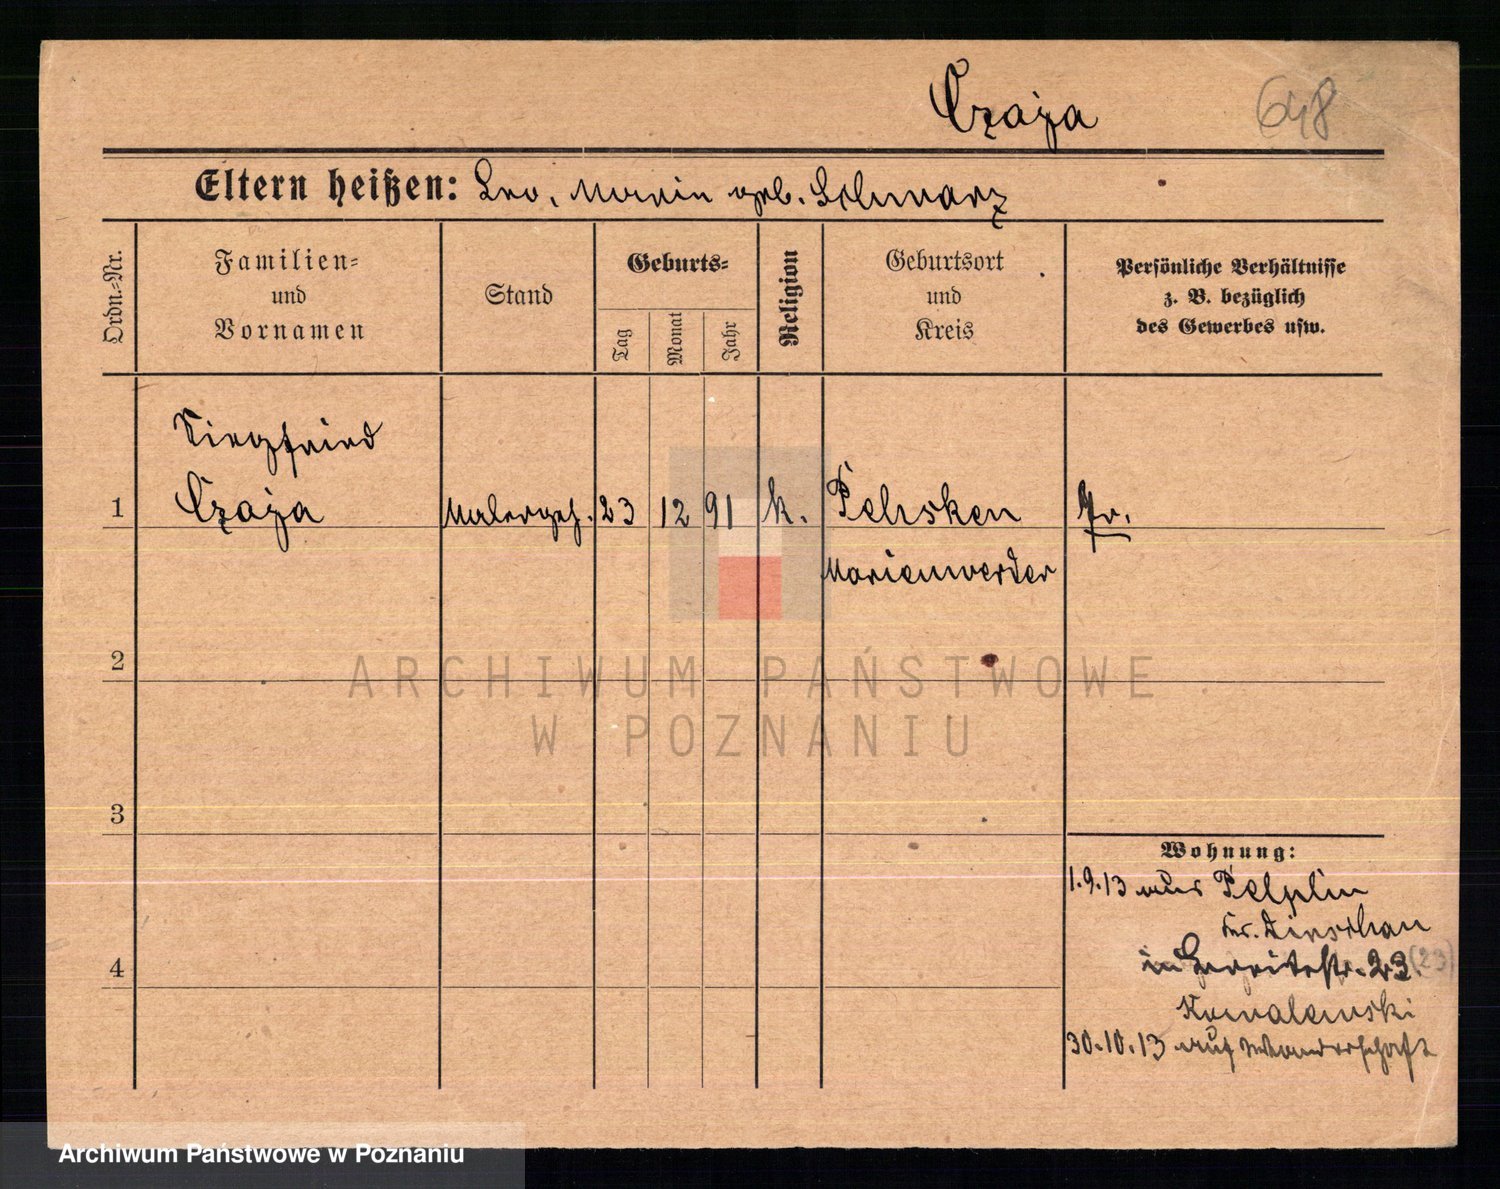 Czaja 648
Eltern heißen: Leo, Marie geb. Schwarz
Ordn.=Nr.
Familien=
und
Vornamen
Stand
Geburts=
Tag
Monat
Jahr
Religion
Geburtsort
und
Kreis
Persönliche Verhältnisse
z. B. bezüglich
des Gewerbes usw.
Siegfried
1 Czaja Malergeh. 23 12 91 k. Pehsken Pr.
Marienwerder
2
3
4
Wohnung:
1.9.13 aus Pelplin
Kr. Dirschau
in 23. (23)
Kowalewski
30.10.13 auf Wanderschaft
ARCHIWUM PAŃSTWOWE
W POZNANIU
Archiwum Państwowe w Poznaniu